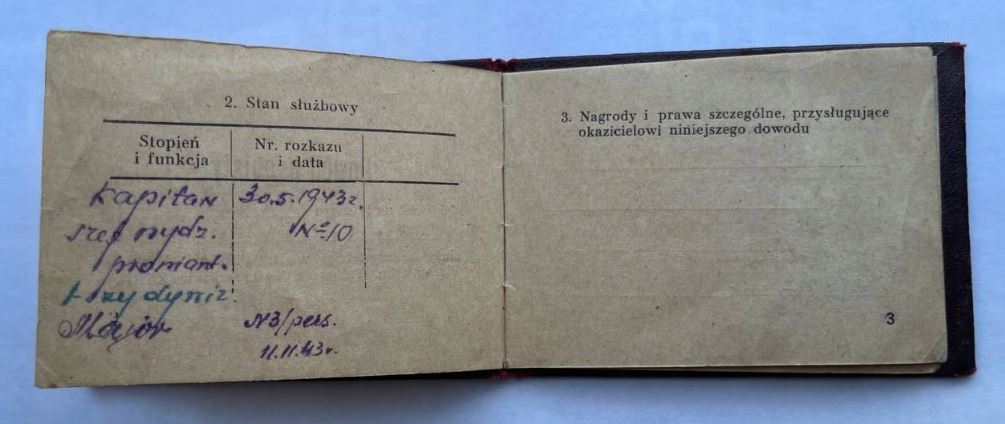 2. Stan służbowy
Stopień i funkcja
Nr. rozkazu i data
Kapitan 30.5.1943r.
szef wydz. №10
prowiant.
1-szej dywiz.
Major N3/pers.
11.11.43r.
3. Nagrody i prawa szczególne, przysługujące
okazicielowi niniejszego dowodu
3